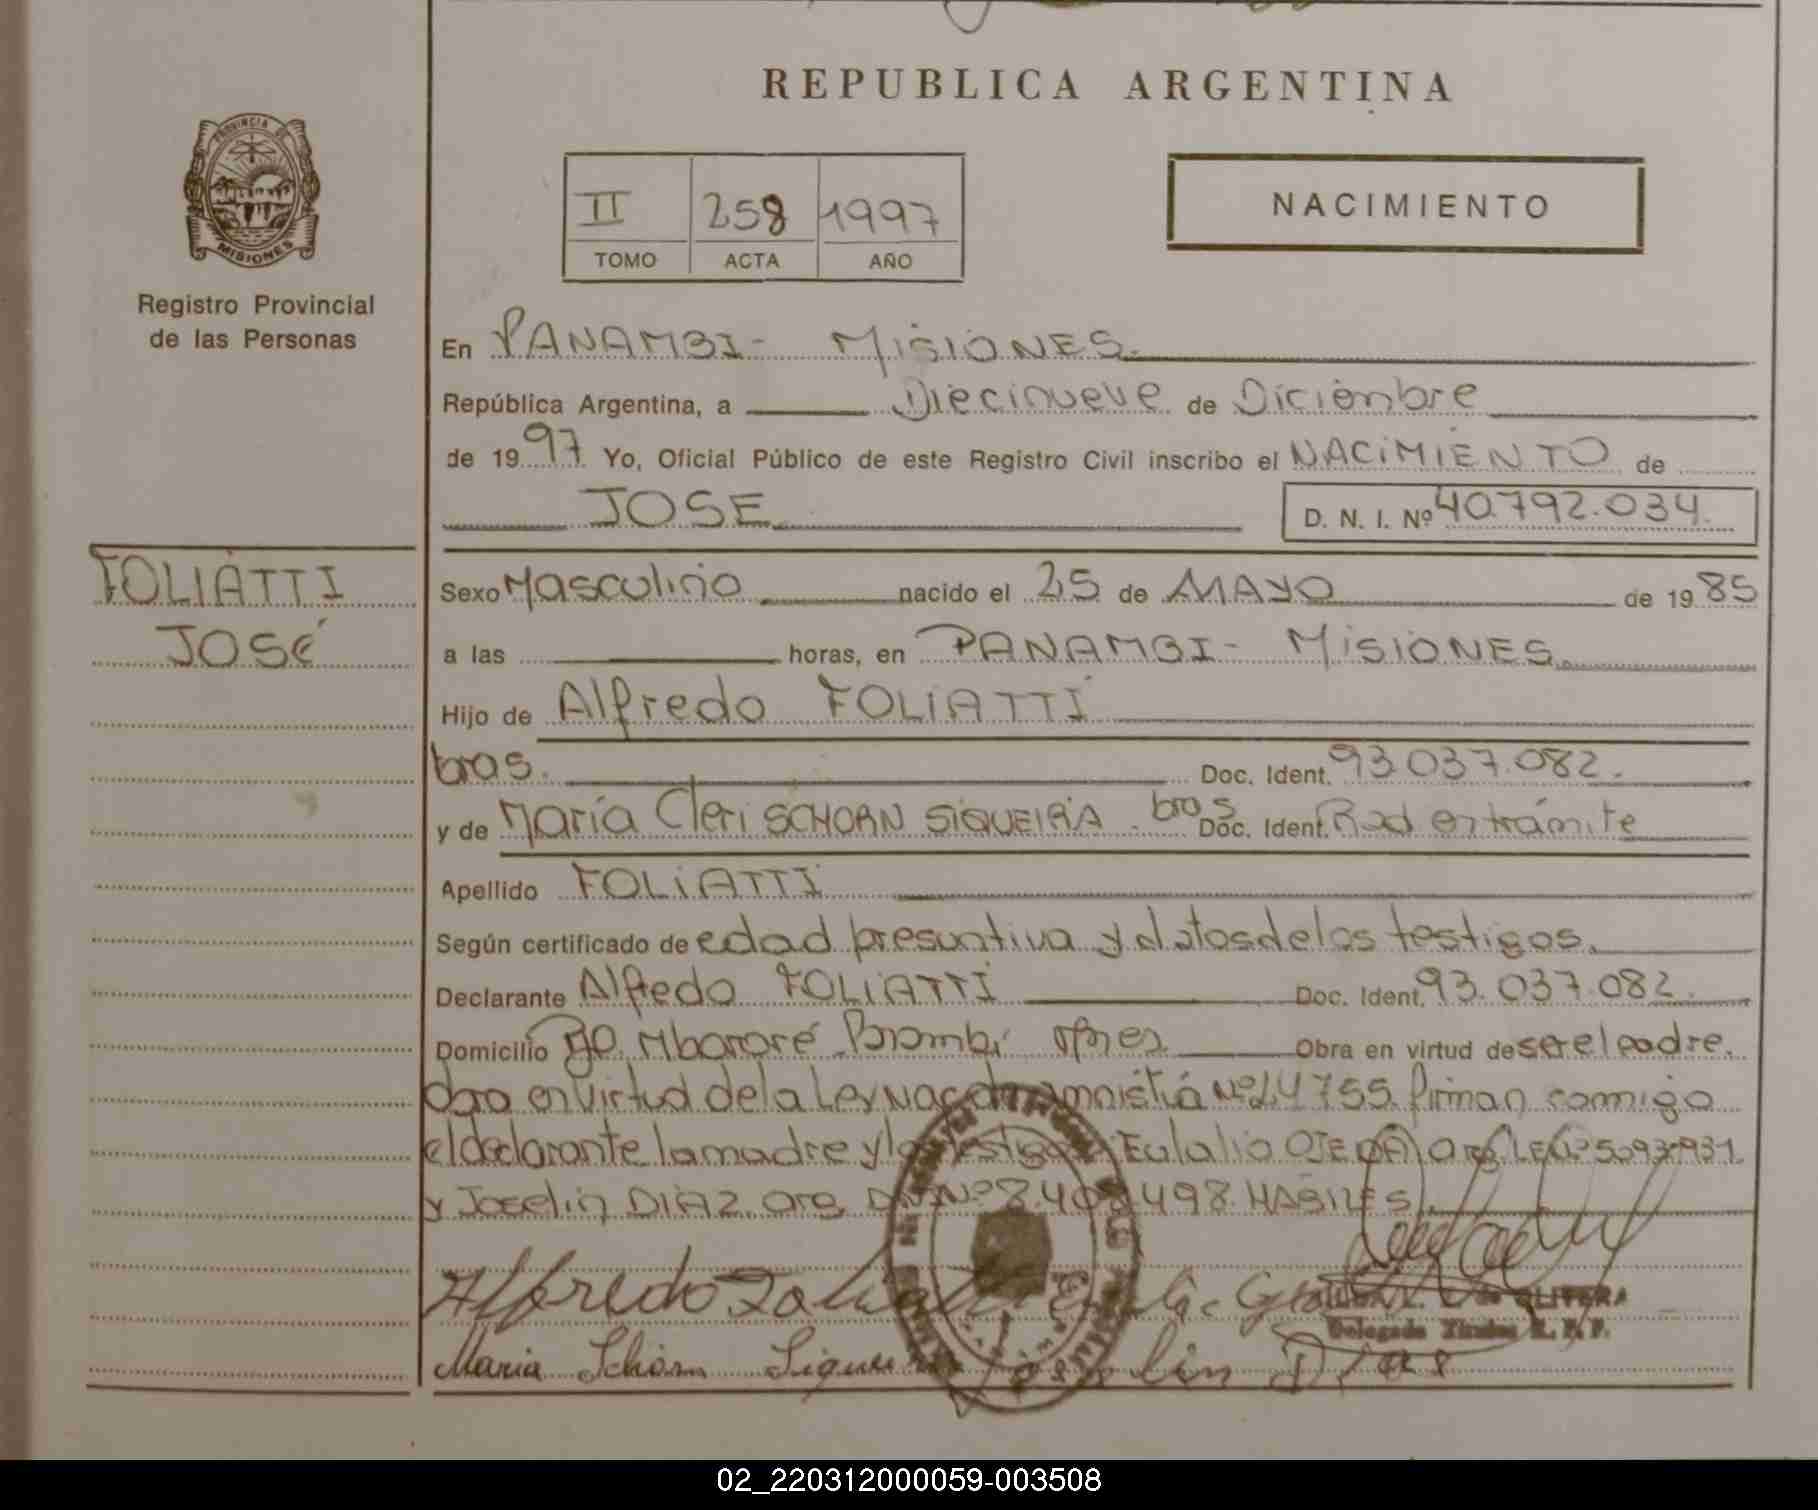 REPUBLICA ARGENTINA
PROVINCIA DE
MISIONES
Registro Provincial
de las Personas
II 258 1997
TOMO ACTA AÑO
NACIMIENTO
En PANAMBI - MISIONES.
República Argentina, a Diecinueve de Diciembre
de 1997 Yo, Oficial Público de este Registro Civil inscribo el NACIMIENTO de
JOSE D. N. I. Nº 40.792.034.
FOLIATTI
JOSÉ
Sexo Masculino nacido el 25 de MAYO de 1985
a las horas, en PANAMBI - MISIONES.
Hijo de Alfredo FOLIATTI
bras. Doc. Ident. 93.037.082.
y de María Cleri SCHORN SIQUEIRA. bras Doc. Ident. Rad en trámite
Apellido FOLIATTI
Según certificado de edad presuntiva y datos de los testigos.
Declarante Alfredo FOLIATTI Doc. Ident. 93.037.082.
Domicilio Mbororé Panambi Obra en virtud de ser el padre.
Obra en virtud de la Ley Nac de amnistía Nº 24755. firman conmigo
el declarante la madre y los testigos Eulalio OJEDA arg LE Nº
y Joselin DIAZ. arg. DNI Nº 8.408.498. HABILES.
Alfredo Foliatti
OLIVERA
Delegada Titular R. P. P.
Maria Schorn Siqueira Joselin Dias
02_220312000059-003508